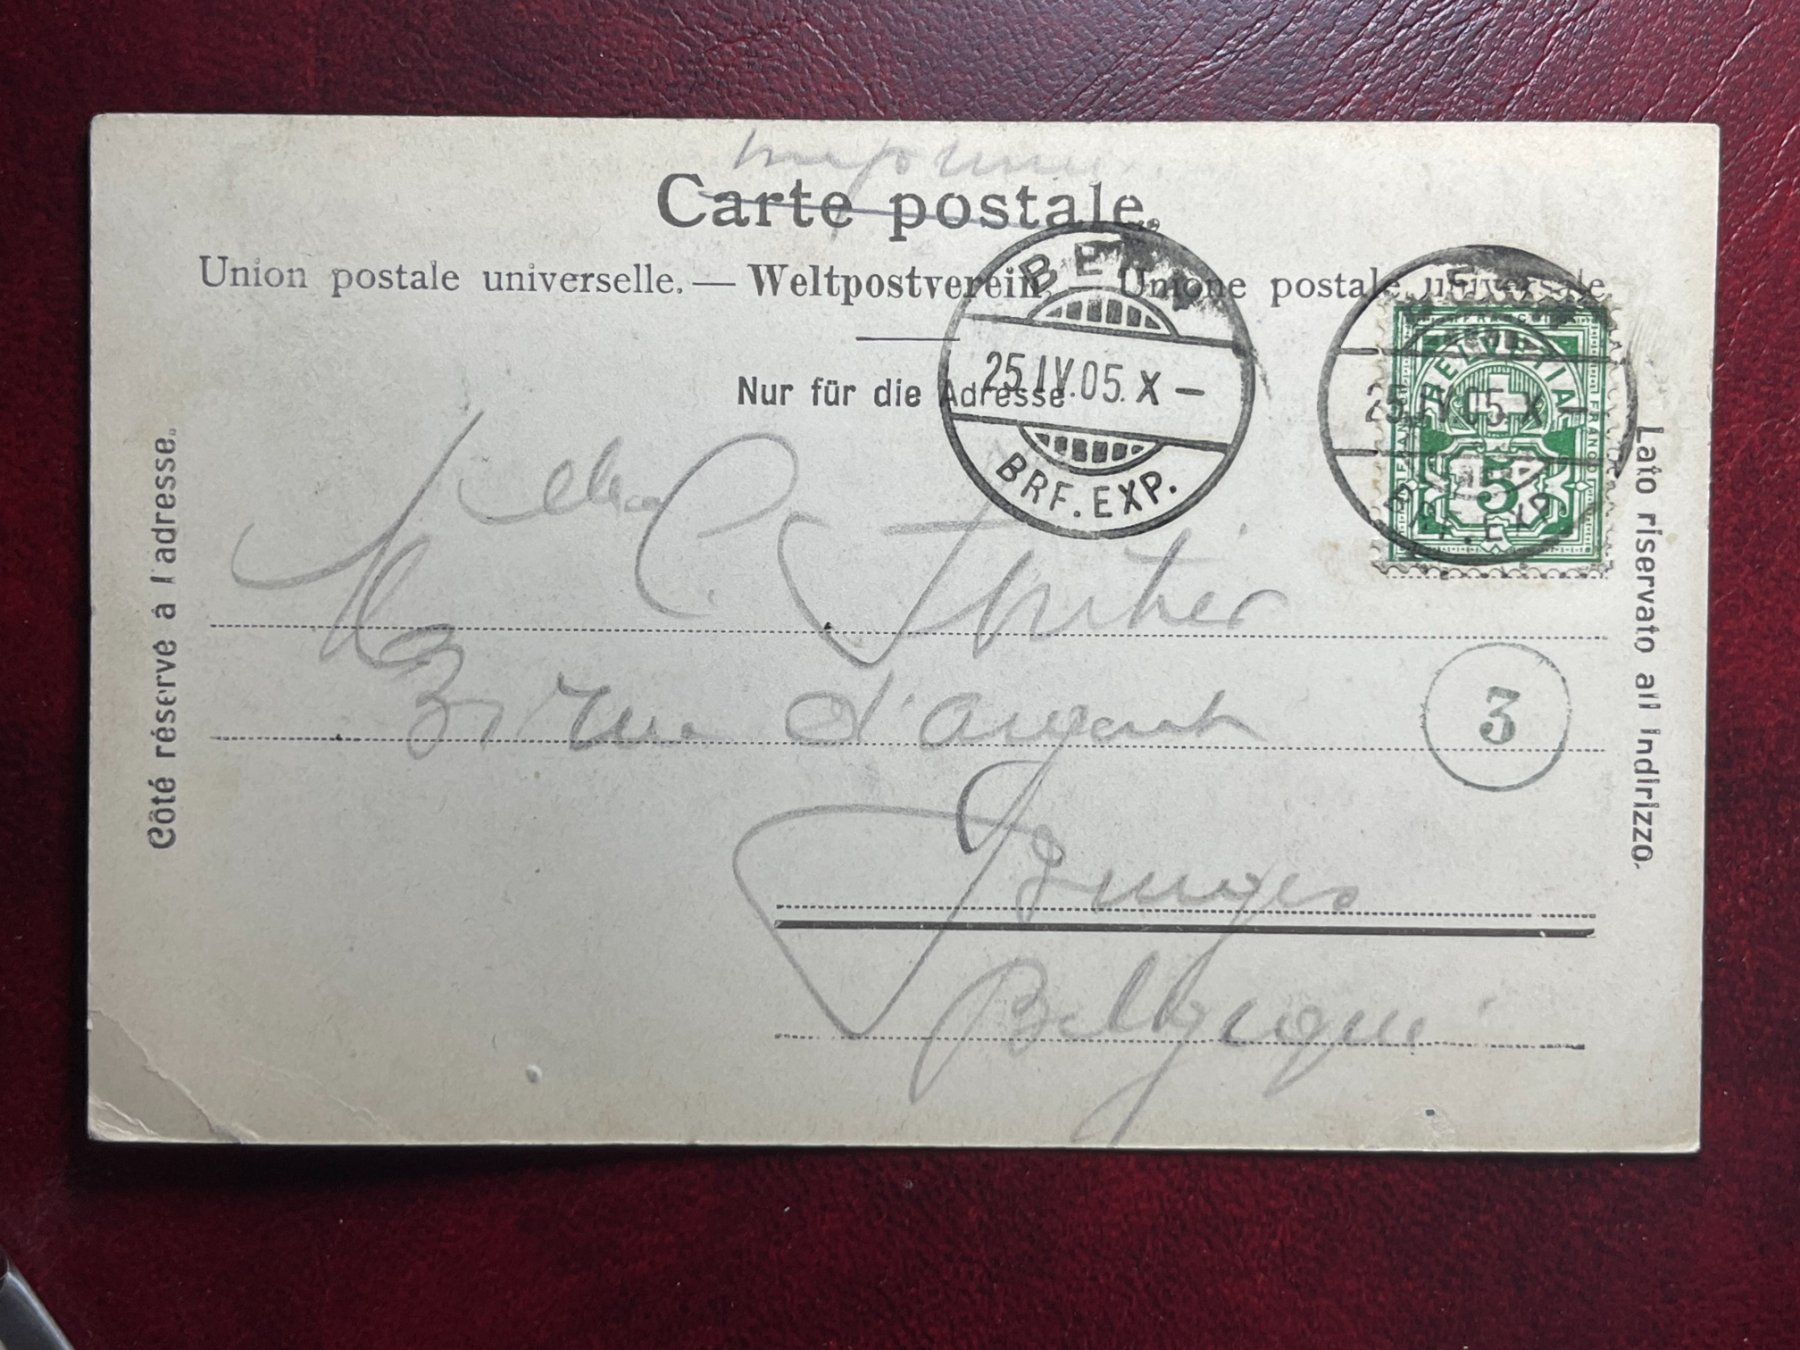 Imprimé
Carte postale.
Union postale universelle. — Weltpostverein. — Unione postale universale
Nur für die Adresse.
Côté réservé à l'adresse.
Lato riservato all'indirizzo.
BERN
25.IV.05.X —
BRF.EXP.
25.IV.05.X —
BRF.EXP.
FRANCO
HELVETIA
5
3
C.
31 rue d'Argent
Bruges
Belgique